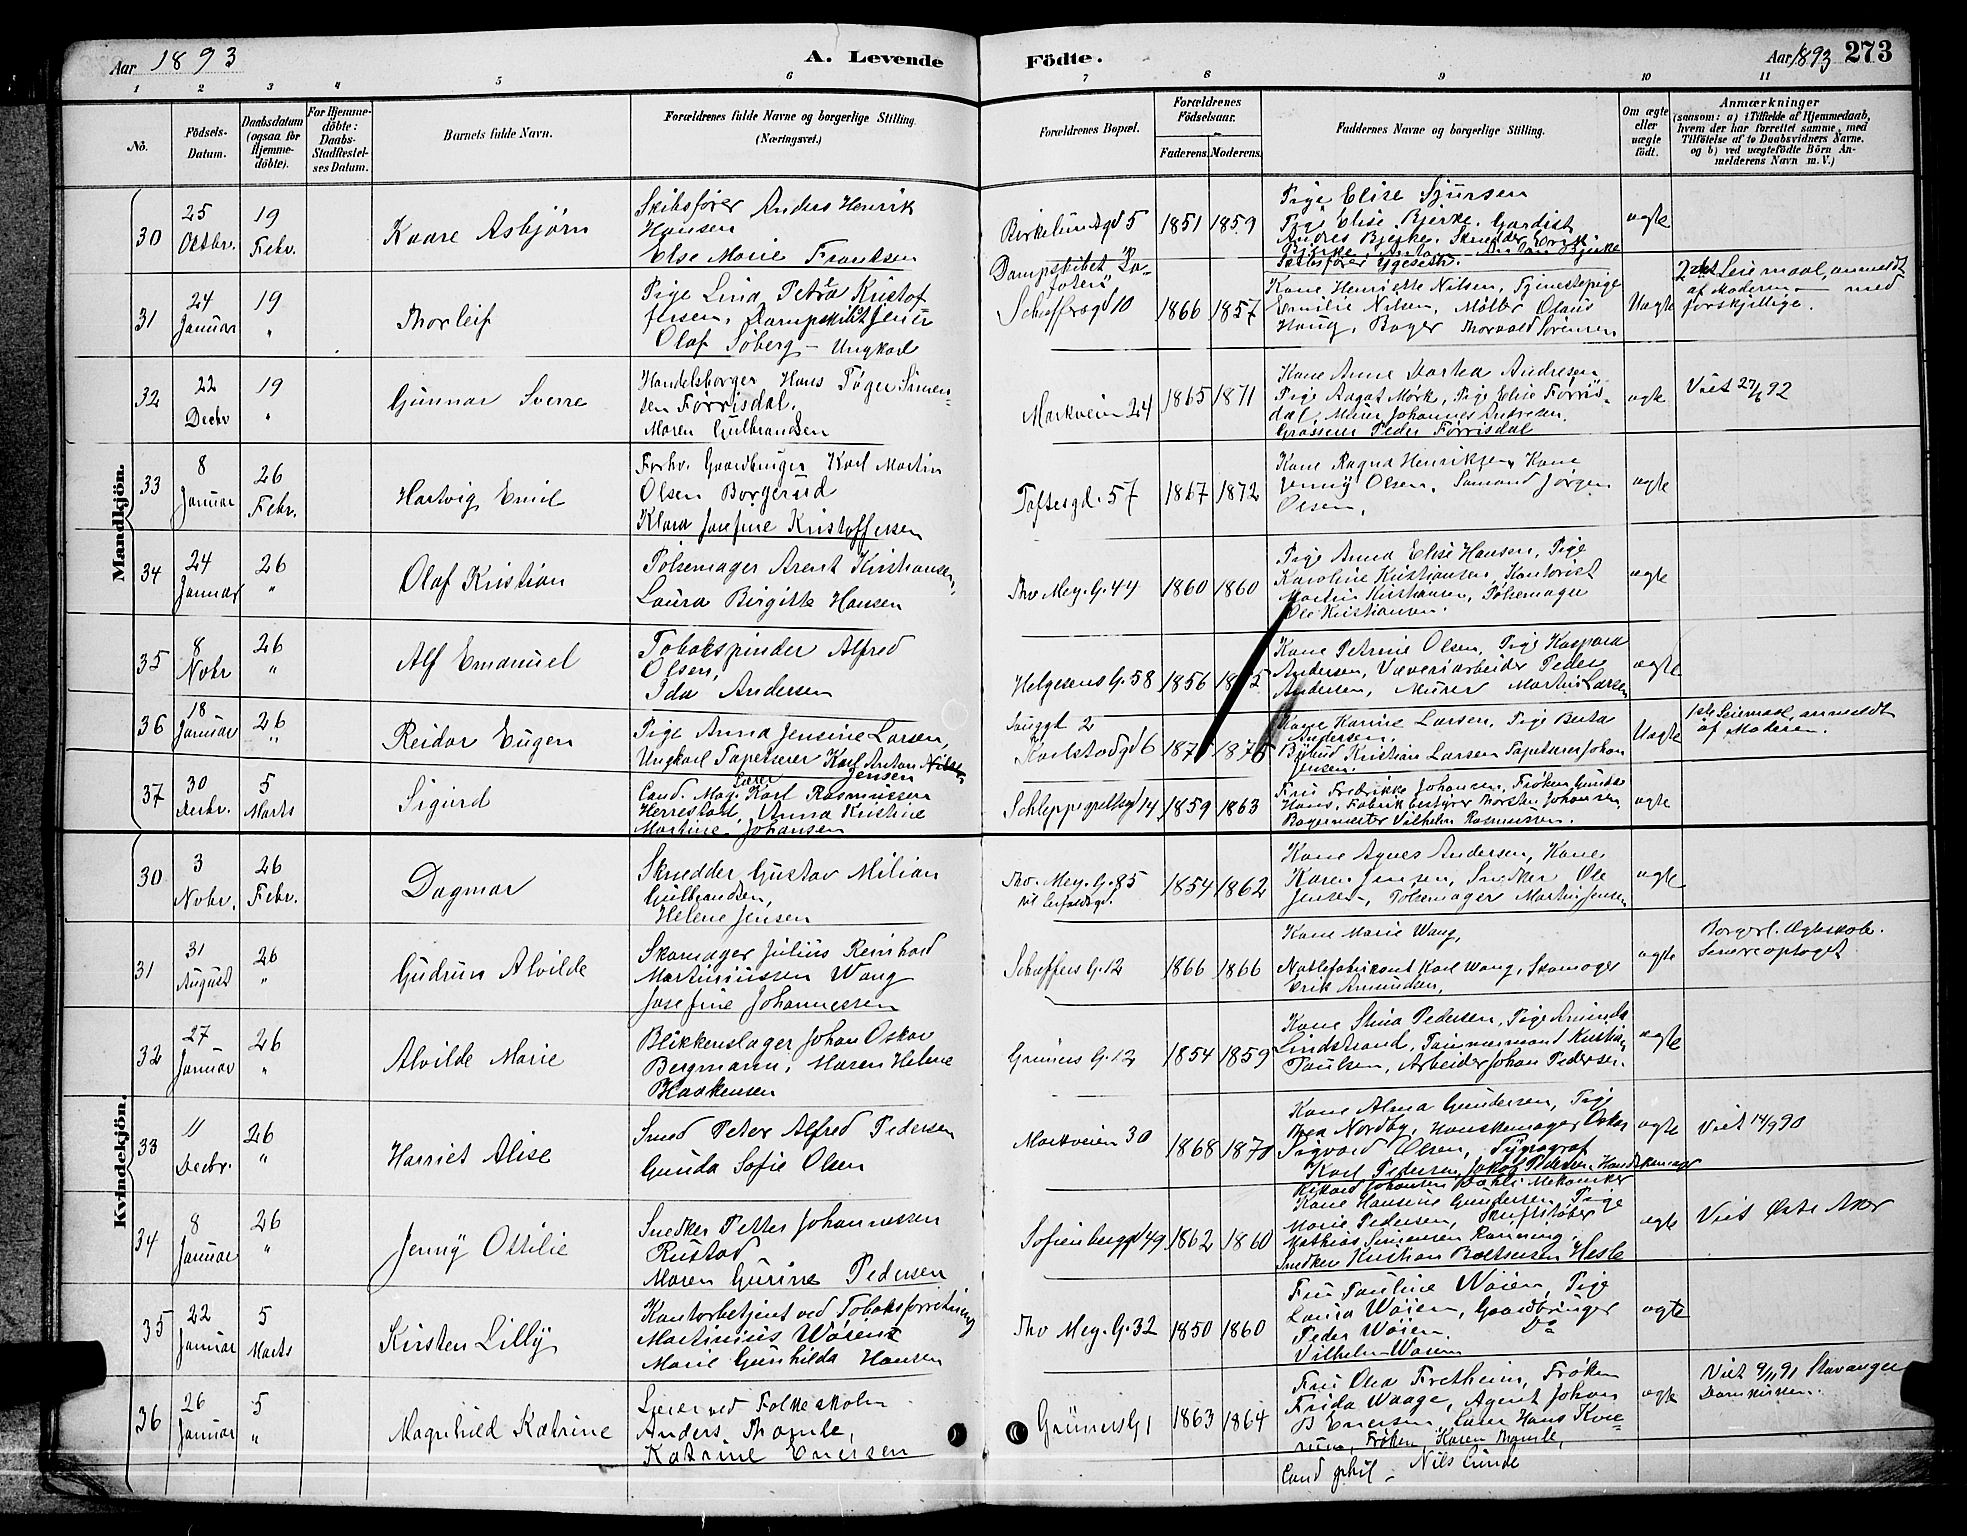 Aar 1893
A. Levende
Födte.
Aar 1893
273
1 2 3 4 5 6 7 8 9 10 11
No.
Födsels-
Datum.
Daabsdatum
(ogsaa for
Hjemme-
döbte).
For Hjemme-
döbte:
Daabs-
Stadfæstel-
ses Datum.
Barnets fulde Navn.
Forældrenes fulde Navne og borgerlige Stilling
(Næringsvei.)
Forældrenes Bopæl.
Forældrenes
Födselsaar.
Faderens. Moderens.
Faddernes Navne og borgerlige Stilling.
Om ægte
eller
uægte
födt.
Anmærkninger
(saasom: a) i Tilfælde af Hjemmedaab,
hvem der har forrettet samme, med
Tilföielse af to Daabsvidners Navne,
og b) ved uægtefödte Börn An-
melderens Navn m. V.)
Mandkjön.
30
25
Oktbr.
19
Febr.
Kaare Asbjørn
Skibsfører Anders Henrik
Hansen
Else Marie Frantsen
Birkelundgd 5
1851 1859
Pige Elise Sjursen
Pige Elise Bjerke, Gardist
Andres Bjerke, Skrædder
ægte
31
24
Januar
19
"
Thorleif
Pige Lina Petra Kristof
fersen,
Olaf Søberg — Ungkarl
Dampskibet "Lo-
foten"
Scheffersgd 10
1866 1857
Kone Henriette Nilsen, Tjenestepige
Emilie Nilsen, Møller Olaus
Haug, Bager Thorvald Sørensen
Uægte
2det Leiermaal, anmeldt
af Moderen — med
forskjellige.
32
22
Decbr
19
"
Gunnar Sverre
Handelsborger Hans Tøger Simen-
sen Førrisdal.
Maren Gulbrandsen
Markveien 24
1865 1871
Kone Anne Dorthea Andresen
Pige Aagot Mørk, Pige Elise Førris-
dal, Murer Johannes Andresen.
Grosserer Peder Førrisdal
ægte
Viet 27/6 92
33
8
Januar
26
Febr.
Hartvig Emil
Forhv. Gaardbruger Karl Martin
Olsen Borgerud
Klara Josefine Kristoffersen
Toftesgd. 57
1867 1872
Kone Ragna Henriksen, Kone
Jenny Olsen, Sømand Jørgen
Olsen,
ægte
34
24
Januar
26
"
Olaf Kristian
Pølsemager Arent Kristiansen,
Laura Birgitte Hansen
Thv Mey. G. 44
1860 1860
Pige Anna Elise Hansen, Pige
Karoline Kristiansen, Kontorist
Martin Kristiansen, Pølsemager
Ole Kristiansen.
ægte
35
8
Novbr
26
"
Alf Emanuel
Tobakspinder Alfred
Olsen,
Ida Andersen
Helgesens G. 58
1856
Kone Petrine Olsen, Pige Kaspara
Andersen, Væveriarbeider Peder
Andersen, Murer Martin Larsen
ægte
36
18
Januar
26
"
Reidar Eugen
Pige Anna Jensine Larsen,
Ungkarl Tapetserer Karl Anton Nilsen
Jensen
2
Karlstadgd 6
Kone Karine Larsen, Pige Berta
Andersen.
Bybud Kristian Larsen Tapetserer Johan
Jensen.
Uægte
1ste Leiermaal, anmeldt
af Moderen.
37
30
Decbr.
5
Marts
Sigurd
Cand. Mag. Lærer Karl Rasmussen
Herrestad, Anna Kristine
Martine Johansen
Schleppegrellsgd 14
1859 1863
Fru Fredrikke Johansen, Frøken Gunda
Hans, Fabrikbestyrer Thorsten Johansen,
Bagermester Vilhelm Rasmussen.
ægte
Kvindekjön.
30
3
Novbr.
26
Febr.
Dagmar
Skrædder Gustav Milian
Gulbrandsen,
Helene Jensen
Thv. Mey. G. 85
1854 1862
Kone Agnes Andersen, Kone
Karen Jensen, Snedker Ole
Jensen, Pølsemager Martin Jensen
ægte
31
31
August
26
"
Gudrun Alvilde
Skomager Julius Reinhard
Martiniussen Wang
Josefine Johannessen
Scheffers G. 12
1866 1866
Kone Marie Wang,
Karl Wang, Skomager
Erik Amundsen,
ægte
Borgerl. Ægteskab.
Senere optaget
32
27
Januar
26
"
Alvilde Marie
Blikkenslager Johan Oskar
Bergmann, Maren Helene
Haakensen
Grüners G. 12
1854 1859
Kone Stina Pedersen, Pige Arminda
Lindstrand, Tømmermand Kristian
Paulsen, Arbeider Johan Pedersen.
ægte
33
11
Decbr.
26
"
Harriet Alise
Smed Peter Alfred Pedersen
Gunda Sofie Olsen
Markveien 30
1868 1870
Kone Alma Gundersen, Pige
Thea Nordby, Hanskemager Oskar
Sigvard Olsen, Typograf
Karl Pedersen, Jakob Pedersen, Handskemager
Rikard Johansen
ægte
Viet 14/9 90
34
8
Januar
26
"
Jenny Ottilie
Snedker Petter Johannessen
Rustad
Maren Gurine Pedersen
Sofienbergd 49
1862 1860
Mekaniker
Kone Hansine Gundersen, Pige
Marie Pedersen,
Mathias Ronning,
Snedker Kristian Baltsersen Hesle
ægte
Viet Østre Aker
35
22
Januar
5
Marts
Kirsten Lilly
Kontorbetjent ved Tobaksforretning
Martinius Wøien
Marie Gunhilda Hansen
Thv Mey. G. 32
1850 1860
Fru Pauline Wøien, Pige
Laura Wøien, Gaardbruger
Peder Wøien. Do
Vilhelm Wøien
ægte
36
26
Januar
5
"
Magnhild Katrine
Lærer ved Folkeskolen
Anders Thomle,
Katrine Enersen
Grüners G 1
1863 1864
Fru Olea Fretheim, Frøken
Frida Waage, Agent Johan
B Enersen, Lærer Hans Kvie-
rum, Frøken Karen Thomle,
Cand phil — Nils Lunde
ægte
Viet 9/11 91 Stavanger
Domkirken.